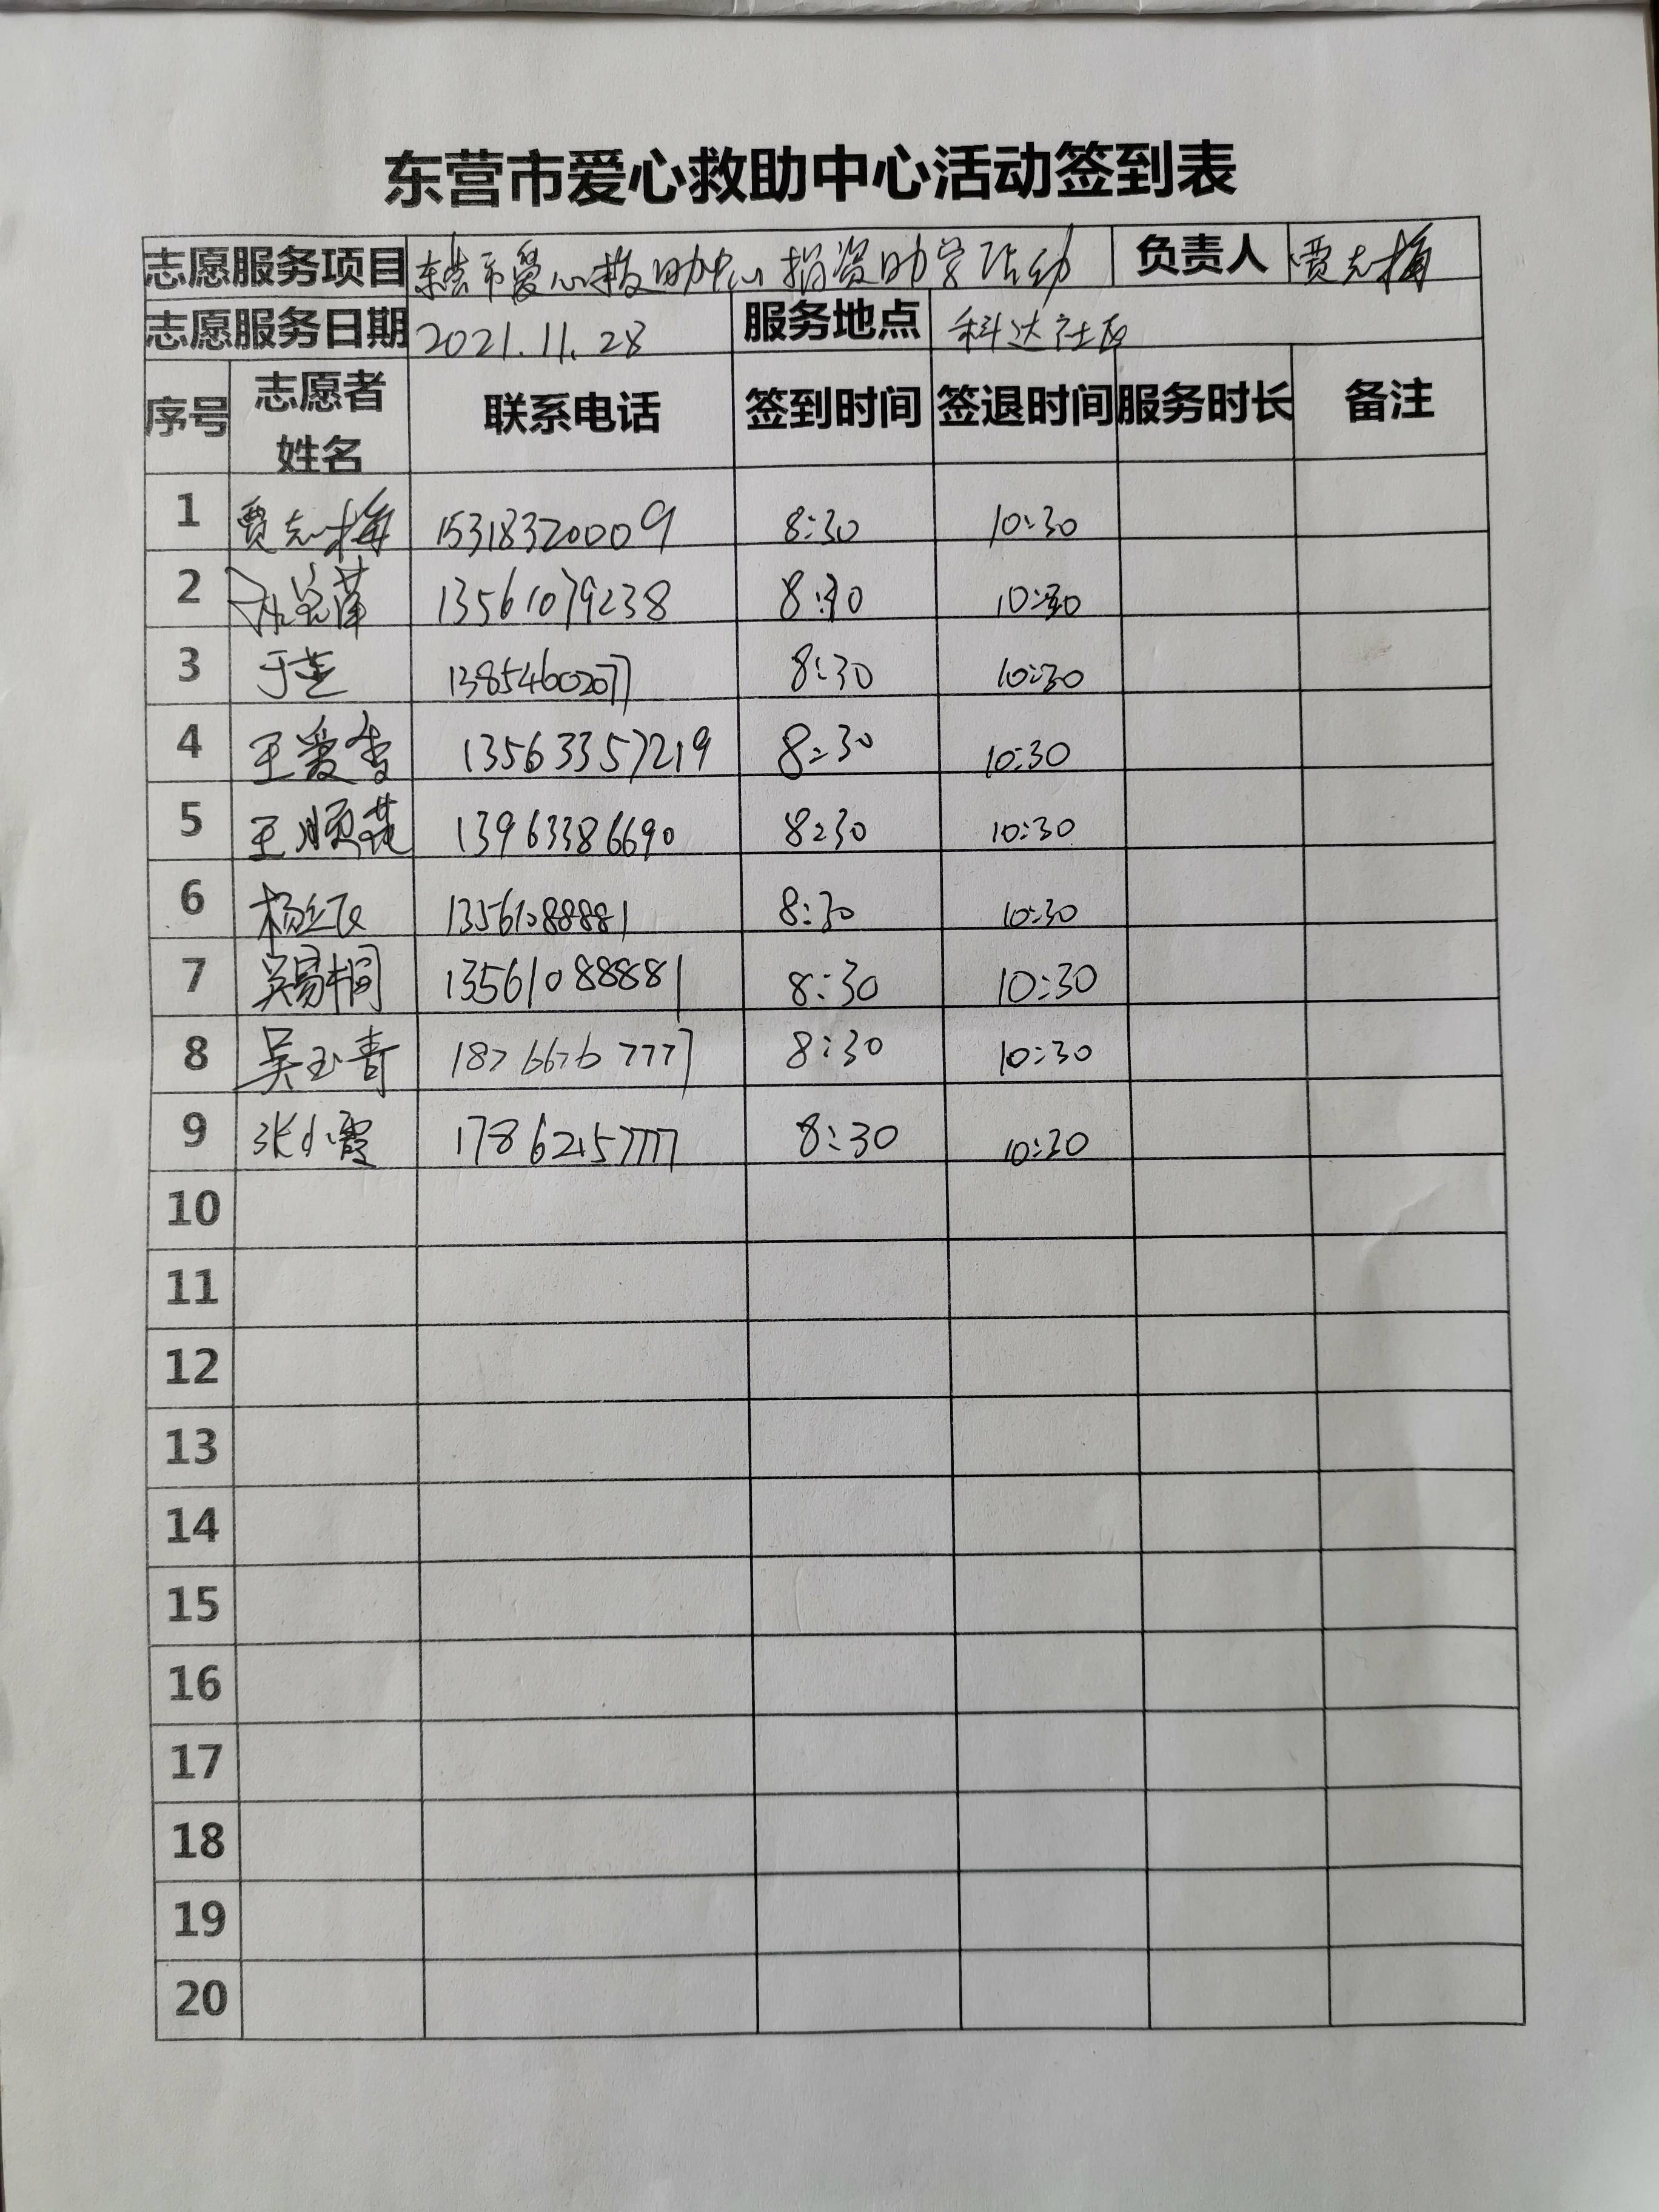 东营市爱心救助中心活动签到表
志愿服务项目 东营市爱心救助中心捐资助学活动 负责人 贾志梅
志愿服务日期 2021.11.28 服务地点 科达社区
序号 志愿者姓名 联系电话 签到时间 签退时间 服务时长 备注
1 贾志梅 15318320009 8:30 10:30
2 13561079238 8:30 10:30
3 13854602077 8:30 10:30
4 王爱香 13563357219 8:30 10:30
5 王顺花 13963386690 8:30 10:30
6 13561088881 8:30 10:30
7 吴易桐 13561088881 8:30 10:30
8 吴玉青 18766767777 8:30 10:30
9 张小霞 17862157777 8:30 10:30
10
11
12
13
14
15
16
17
18
19
20